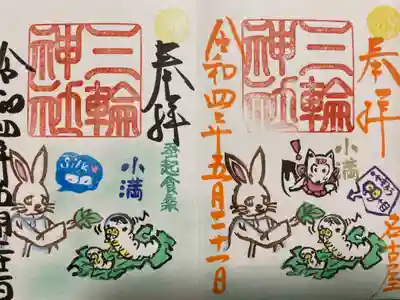 奉拝
名古屋
三輪
神社
小満
!
令和四年五月二十一日
奉拝
蚕起食桑
三輪
神社
小満
Silk
令和四年五月